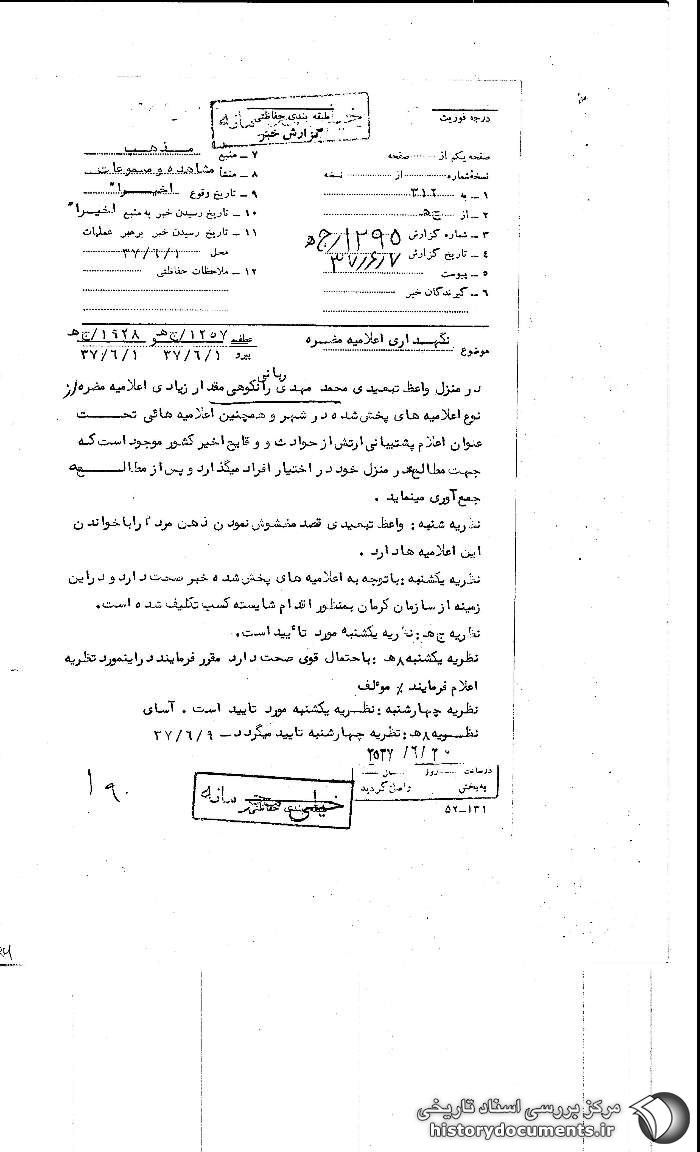 درجه فوریت
طبقه بندی حفاظتی
خیلی محرمانه
گزارش خبر
صفحه یکم از صفحه
نسخه شماره از نسخه
۱ـ به ۳۱۲
۲ـ از ج‌هـ
۳ـ شماره گزارش ۱۲۹۵/ج‌ه
۴ـ تاریخ گزارش ۳۷/۶/۷
۵ـ پیوست
۶ـ گیرندگان خبر
۷ـ منبع مذهب
۸ـ منشأ مشاهده و مسموعات
۹ـ تاریخ وقوع اخیرا"
۱۰ـ تاریخ رسیدن خبر به منبع اخیرا"
۱۱ـ تاریخ رسیدن خبر برهبر عملیات
محل ۳۷/۶/۱
۱۲ـ ملاحظات حفاظتی
موضوع نگهداری اعلامیه مضره
عطف ۱۲۵۷/ج‌هـ و ۱۹۲۸/ج‌هـ
پیرو ۳۷/۶/۱ ۳۷/۶/۱
در منزل واعظ تبعیدی محمد مهدی ربانی رانکوهی مقدار زیادی اعلامیه مضره از
نوع اعلامیه های پخش شده در شهر و همچنین اعلامیه هائی تحت
عنوان اعلام پشتیبانی ارتش از حوادث و وقایع اخیر کشور موجود است که
جهت مطالعه در منزل خود در اختیار افراد میگذارد و پس از مطالعه
جمع آوری مینماید .
نظریه شنبه : واعظ تبعیدی قصد مغشوش نمودن ذهن مردم را با خواندن
این اعلامیه ها دارد .
نظریه یکشنبه : با توجه به اعلامیه های پخش شده خبر صحت دارد و در این
زمینه از سازمان کرمان بمنظور اقدام شایسته کسب تکلیف شده است .
نظریه ج‌هـ : نظریه یکشنبه مورد تأیید است .
نظریه یکشنبه ۸هـ : با احتمال قوی صحت دارد مقرر فرمایند در اینمورد نظریه
اعلام فرمایند ٪ موءلف
نظریه چهارشنبه : نظریه یکشنبه مورد تایید است . آسای
نظریه ۸هـ : نظریه چهارشنبه تایید میگردد ـ ۳۷/۶/۹
۲۵۳۷/۶/۲۰
در ساعت روز سال
به بخش واصل گردید
۱۳۱ـ۵۲
طبقه بندی حفاظتی
خیلی محرمانه
۱۹۰
مرکز بررسی اسناد تاریخی
historydocuments.ir